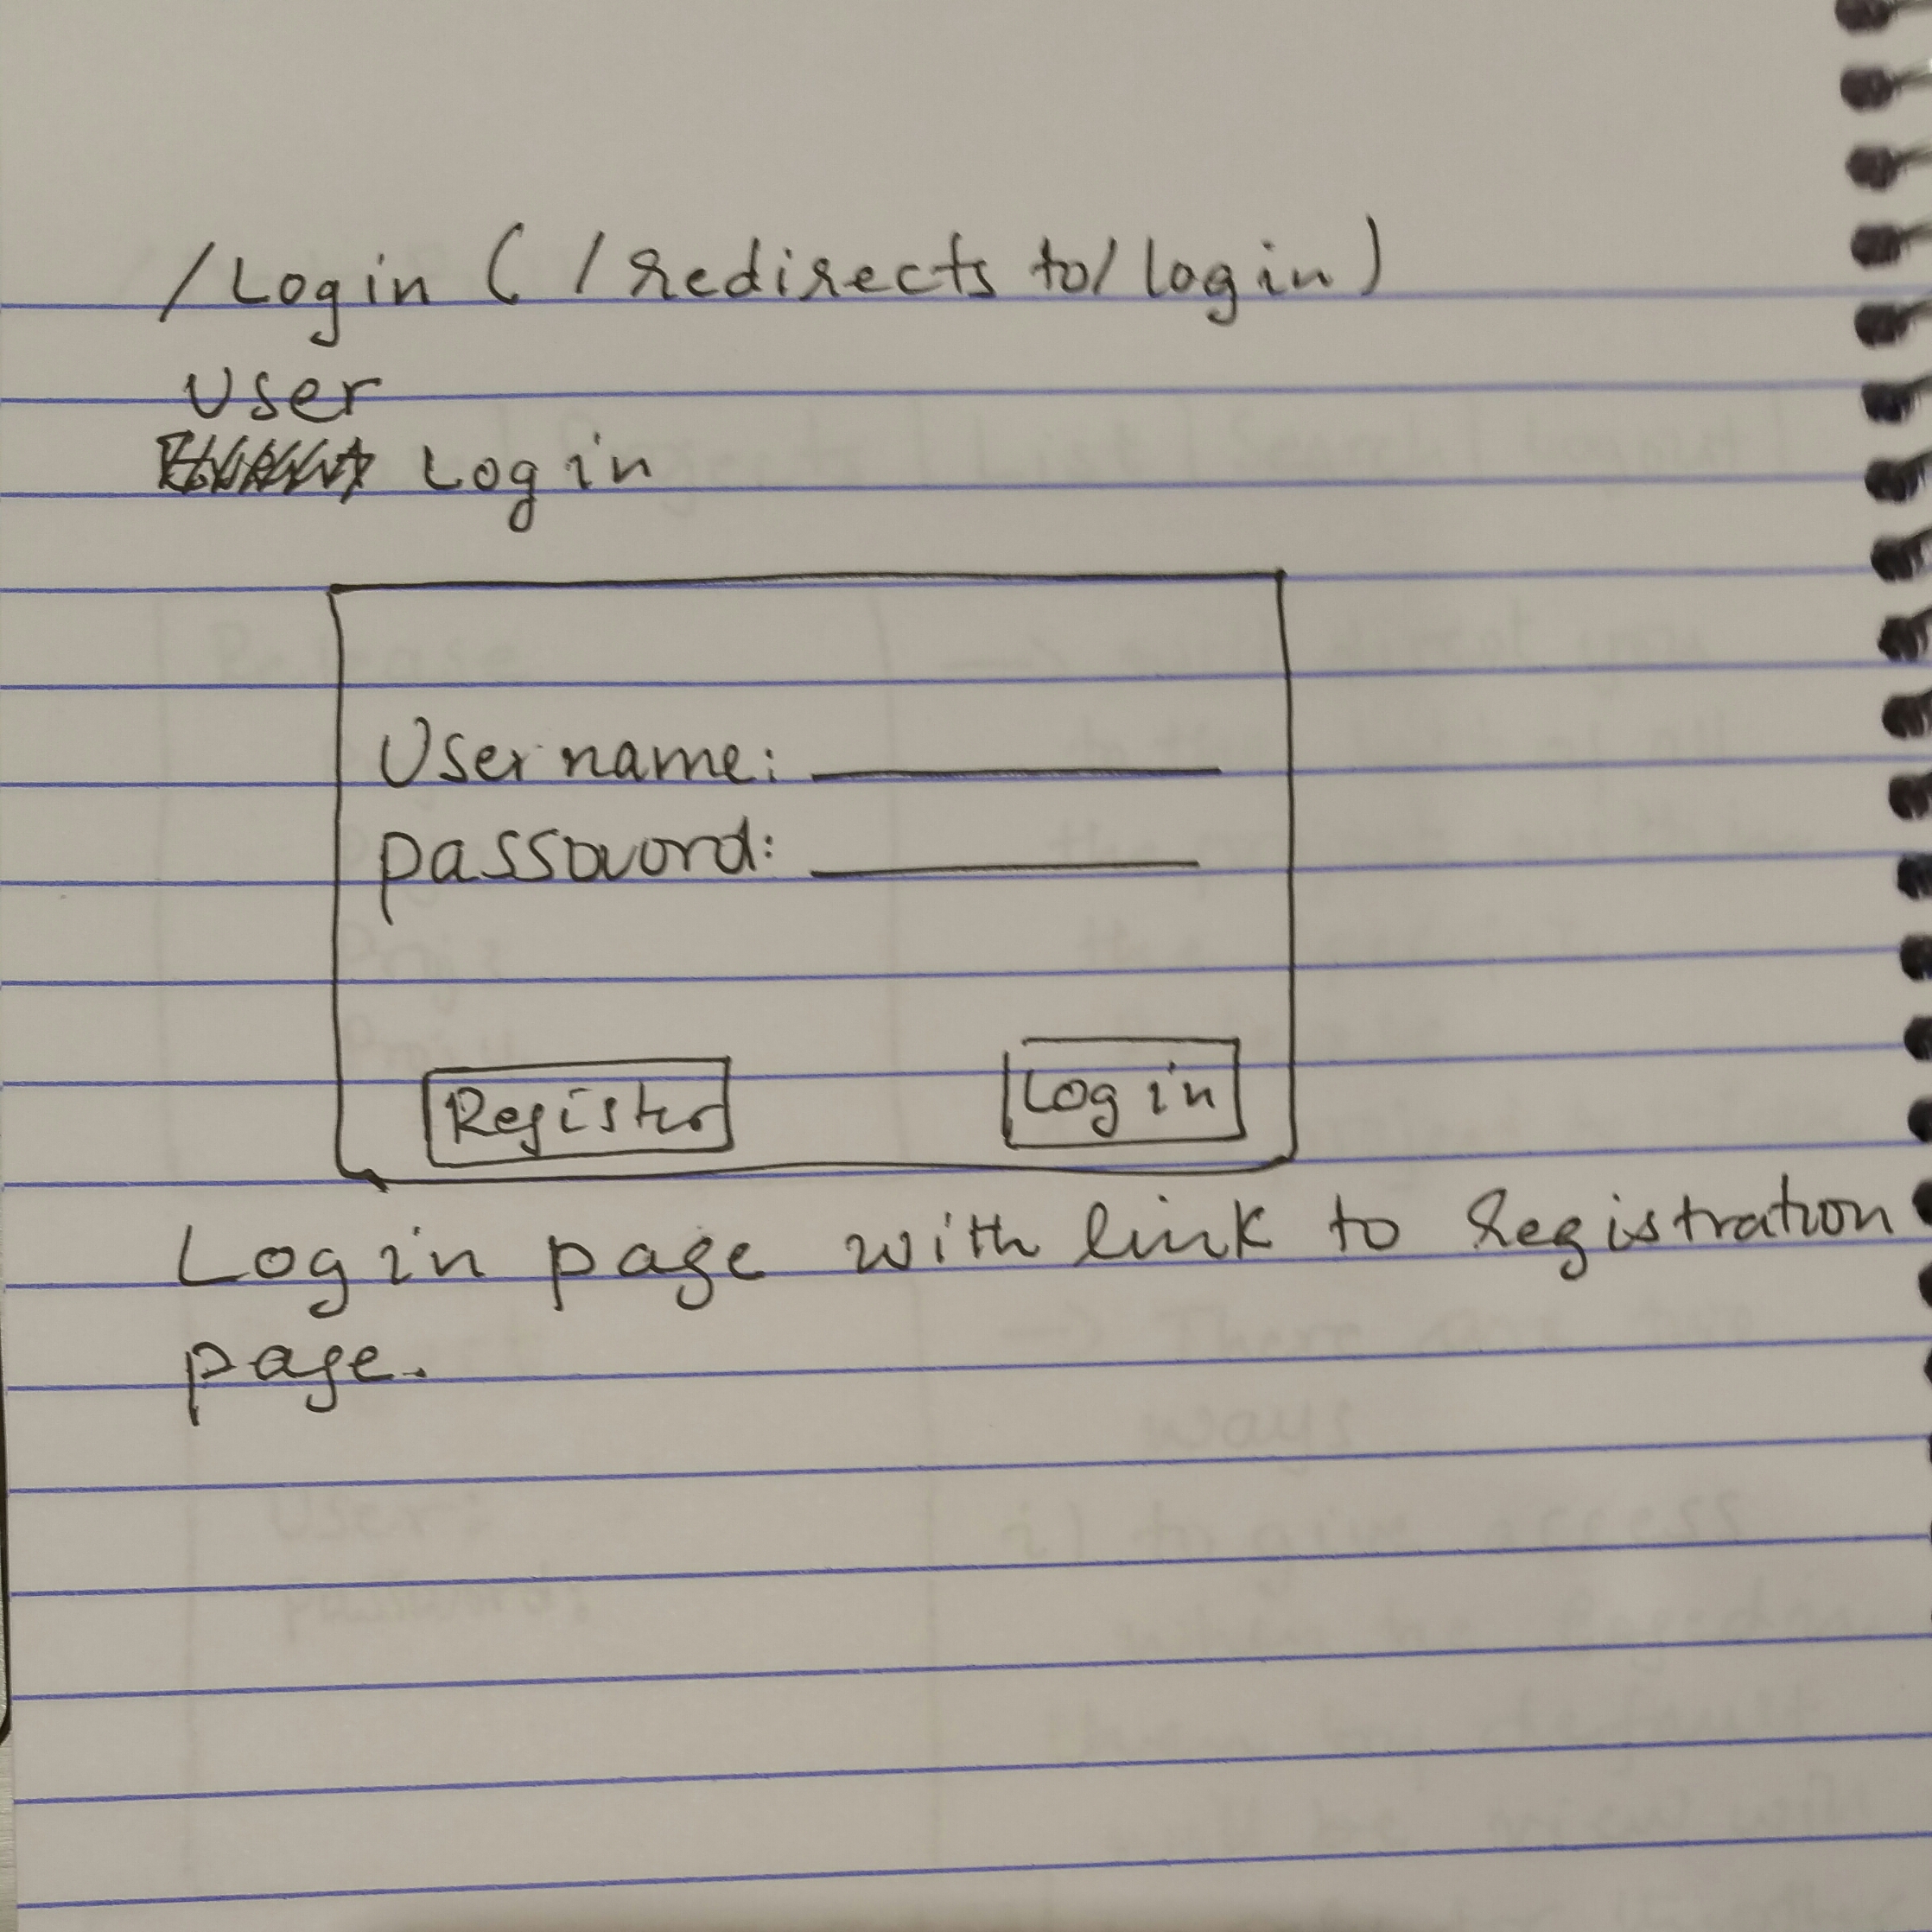 /Login ( / redirects to / login )
User
Login
Username:
password:
Register
Login
Login page with link to Registration
page.